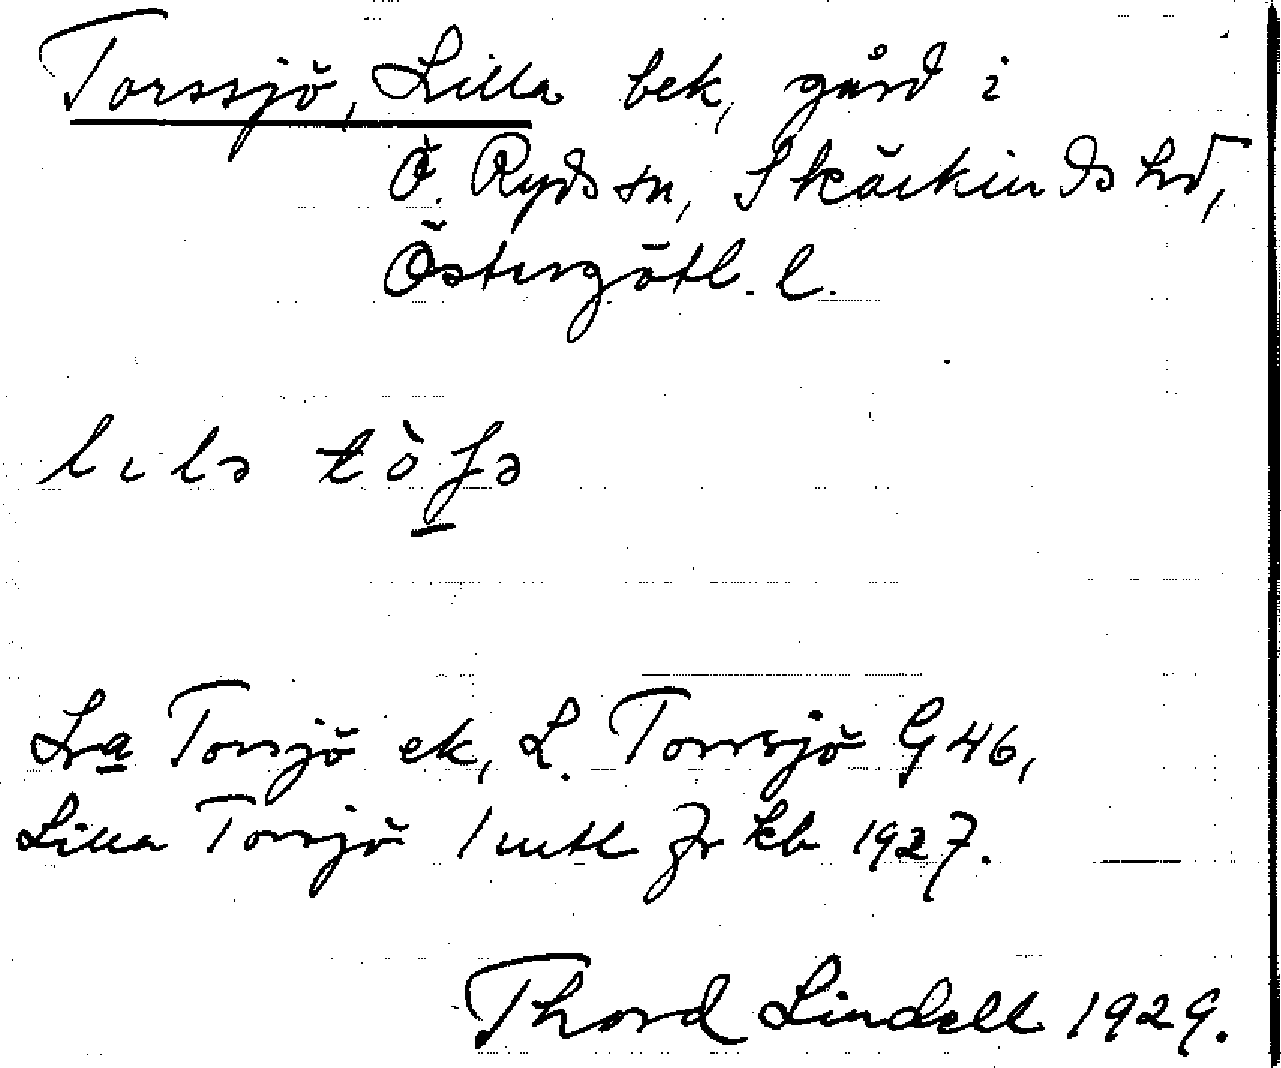 Torssjö, Lilla bek, gård i
Ö. Ryds sn, Skärkinds hd,
Östergötl. l.
lılə tòʃə
Lra Torsjö ek, L. Torrsjö G 46,
Lilla Torsjö 1 mtl jr kb 1927.
Thord Lindell 1929.